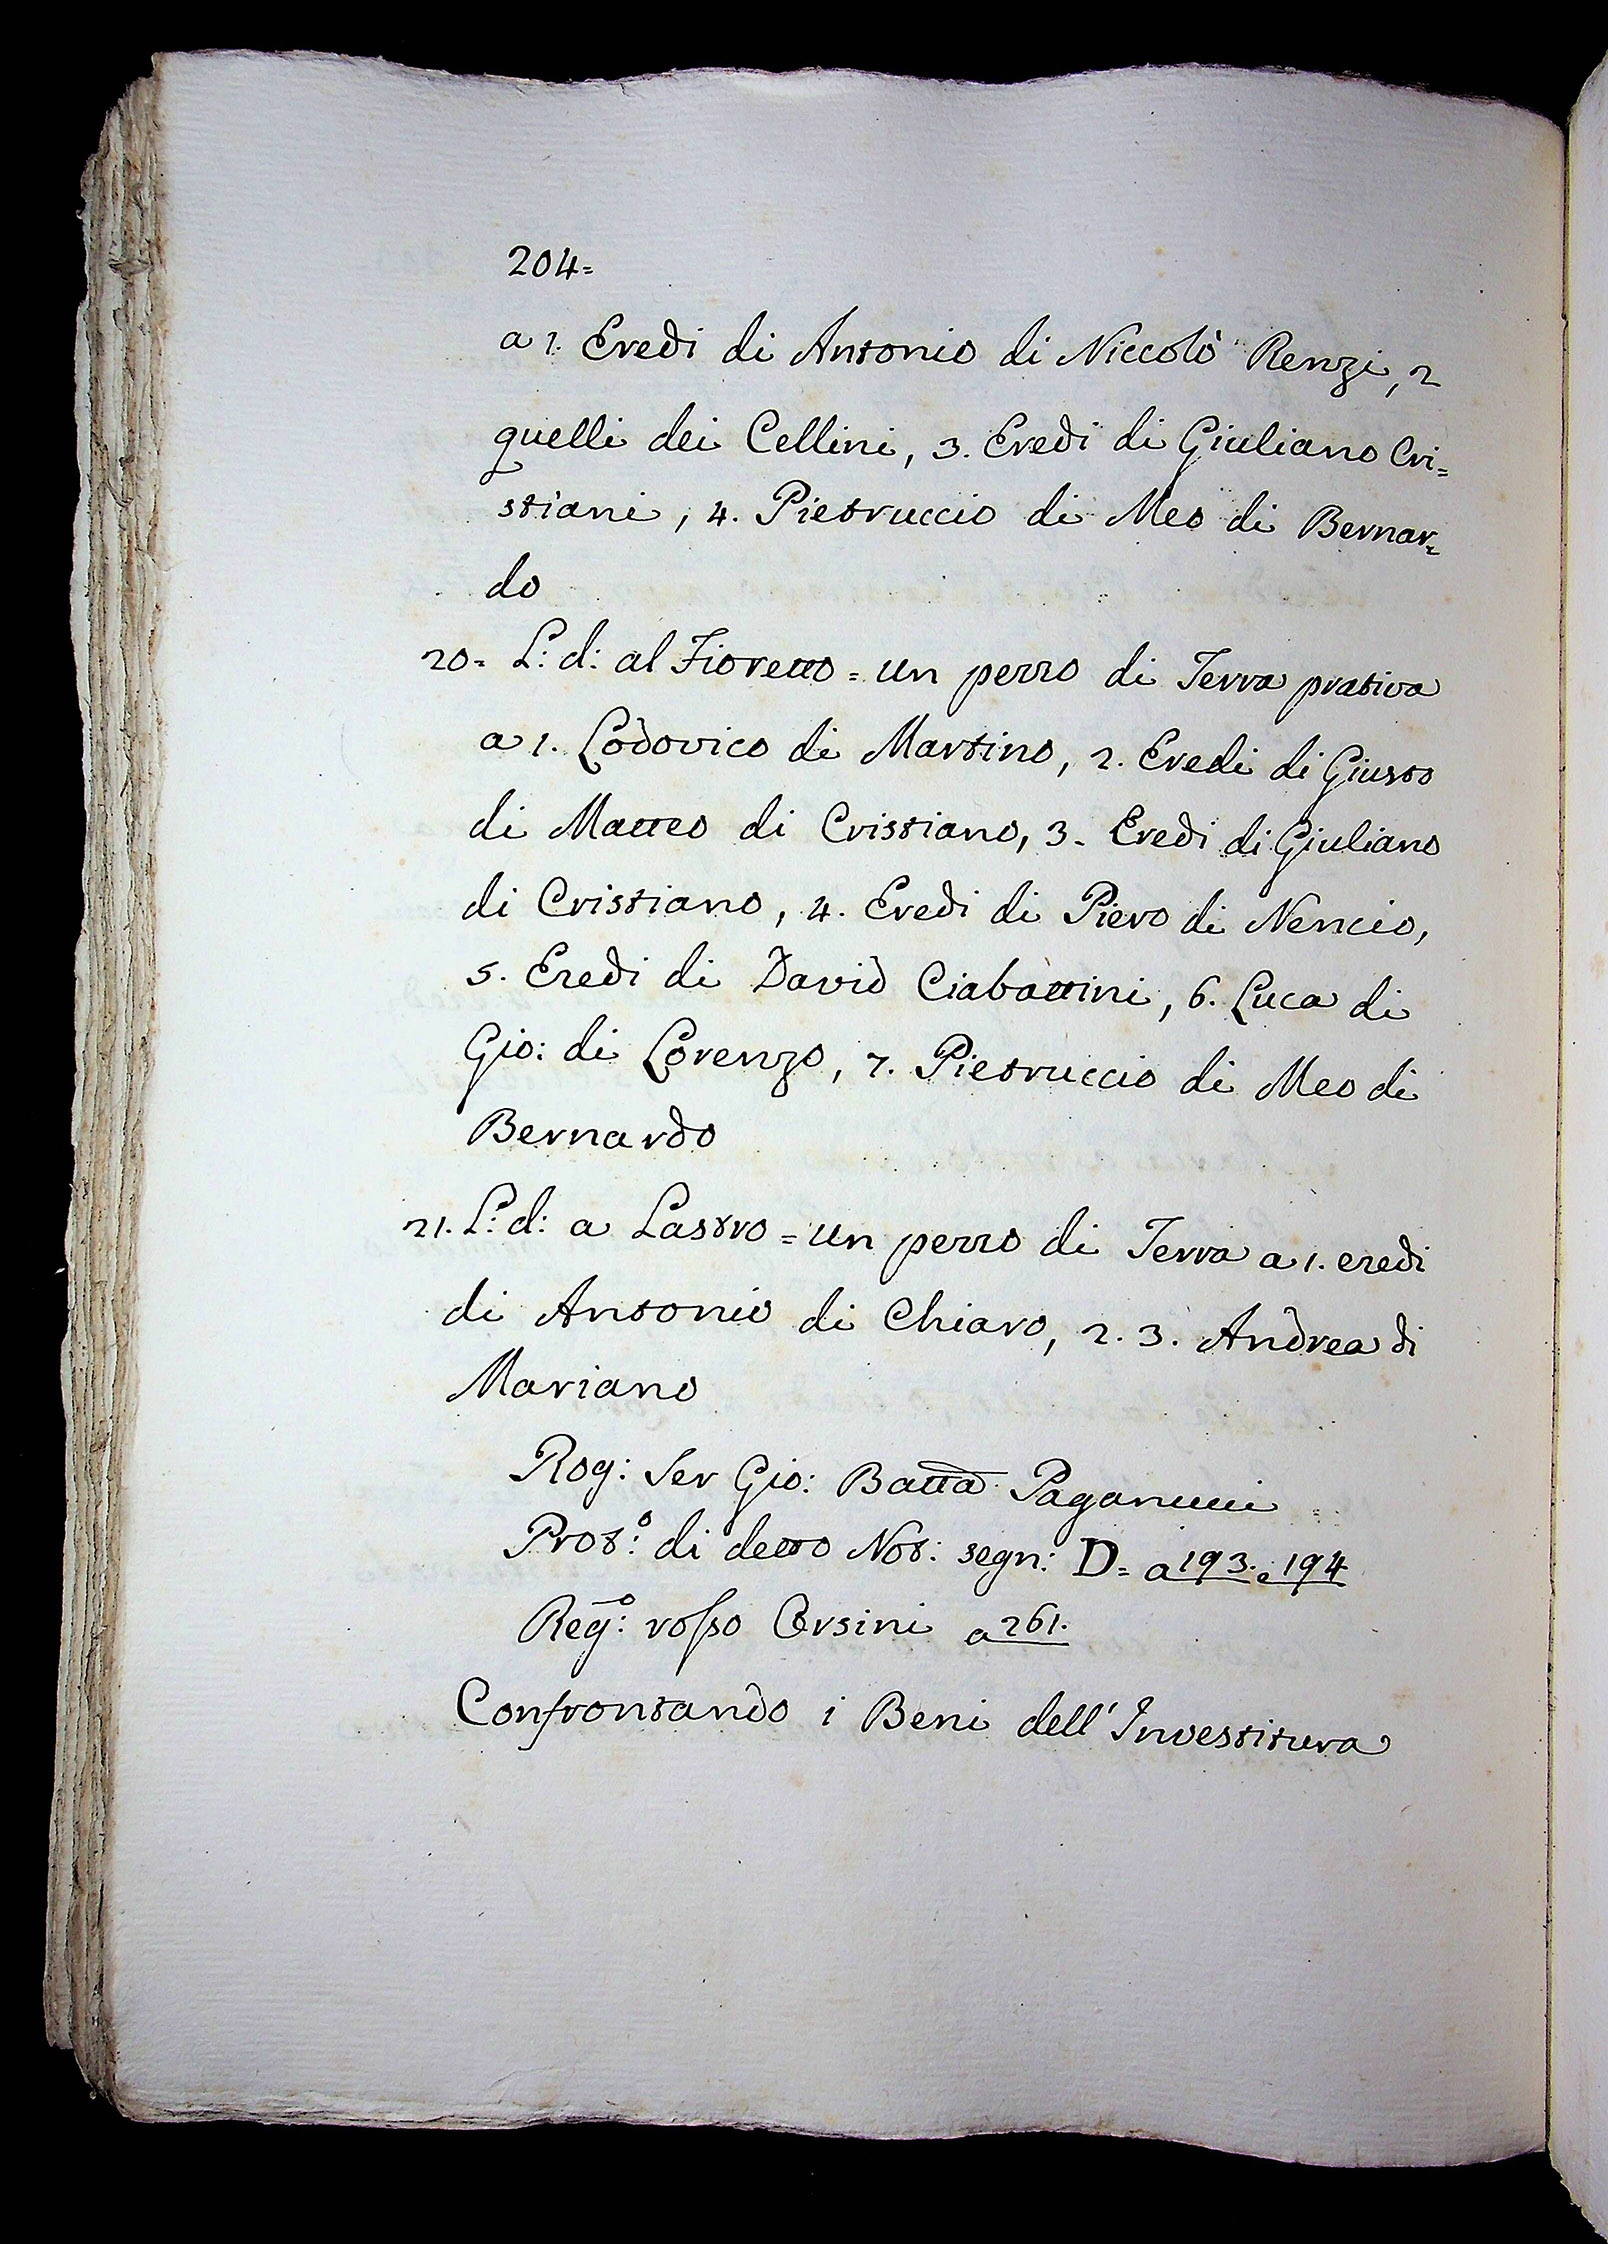 204=
a 1. Eredi di Antonio di Niccolò Renzi, 2
quelli dei Cellini, 3. Eredi di Giuliano Cri=
stiani, 4. Pietruccio di Meo di Bernar=
do
20= L: d: al Fioretto = un pezzo di Terra prativa
a 1. Lodovico di Martino, 2. Eredi di Giusto
di Matteo di Cristiano, 3. Eredi di Giuliano
di Cristiano, 4. Eredi di Piero di Nencio,
5. Eredi di David Ciabattini, 6. Luca di
Gio: di Lorenzo, 7. Pietruccio di Meo di
Bernardo
21. L: d: a Lastro = un pezzo di Terra a 1. eredi
di Antonio di Chiaro, 2. 3. Andrea di
Mariano
Rog: Ser Gio: Batta Paganucci
Prot:º di detto Not: segn: D= a 193. e 194
Reg:º rosso Corsini a 261.
Confrontando i Beni dell'Investitura